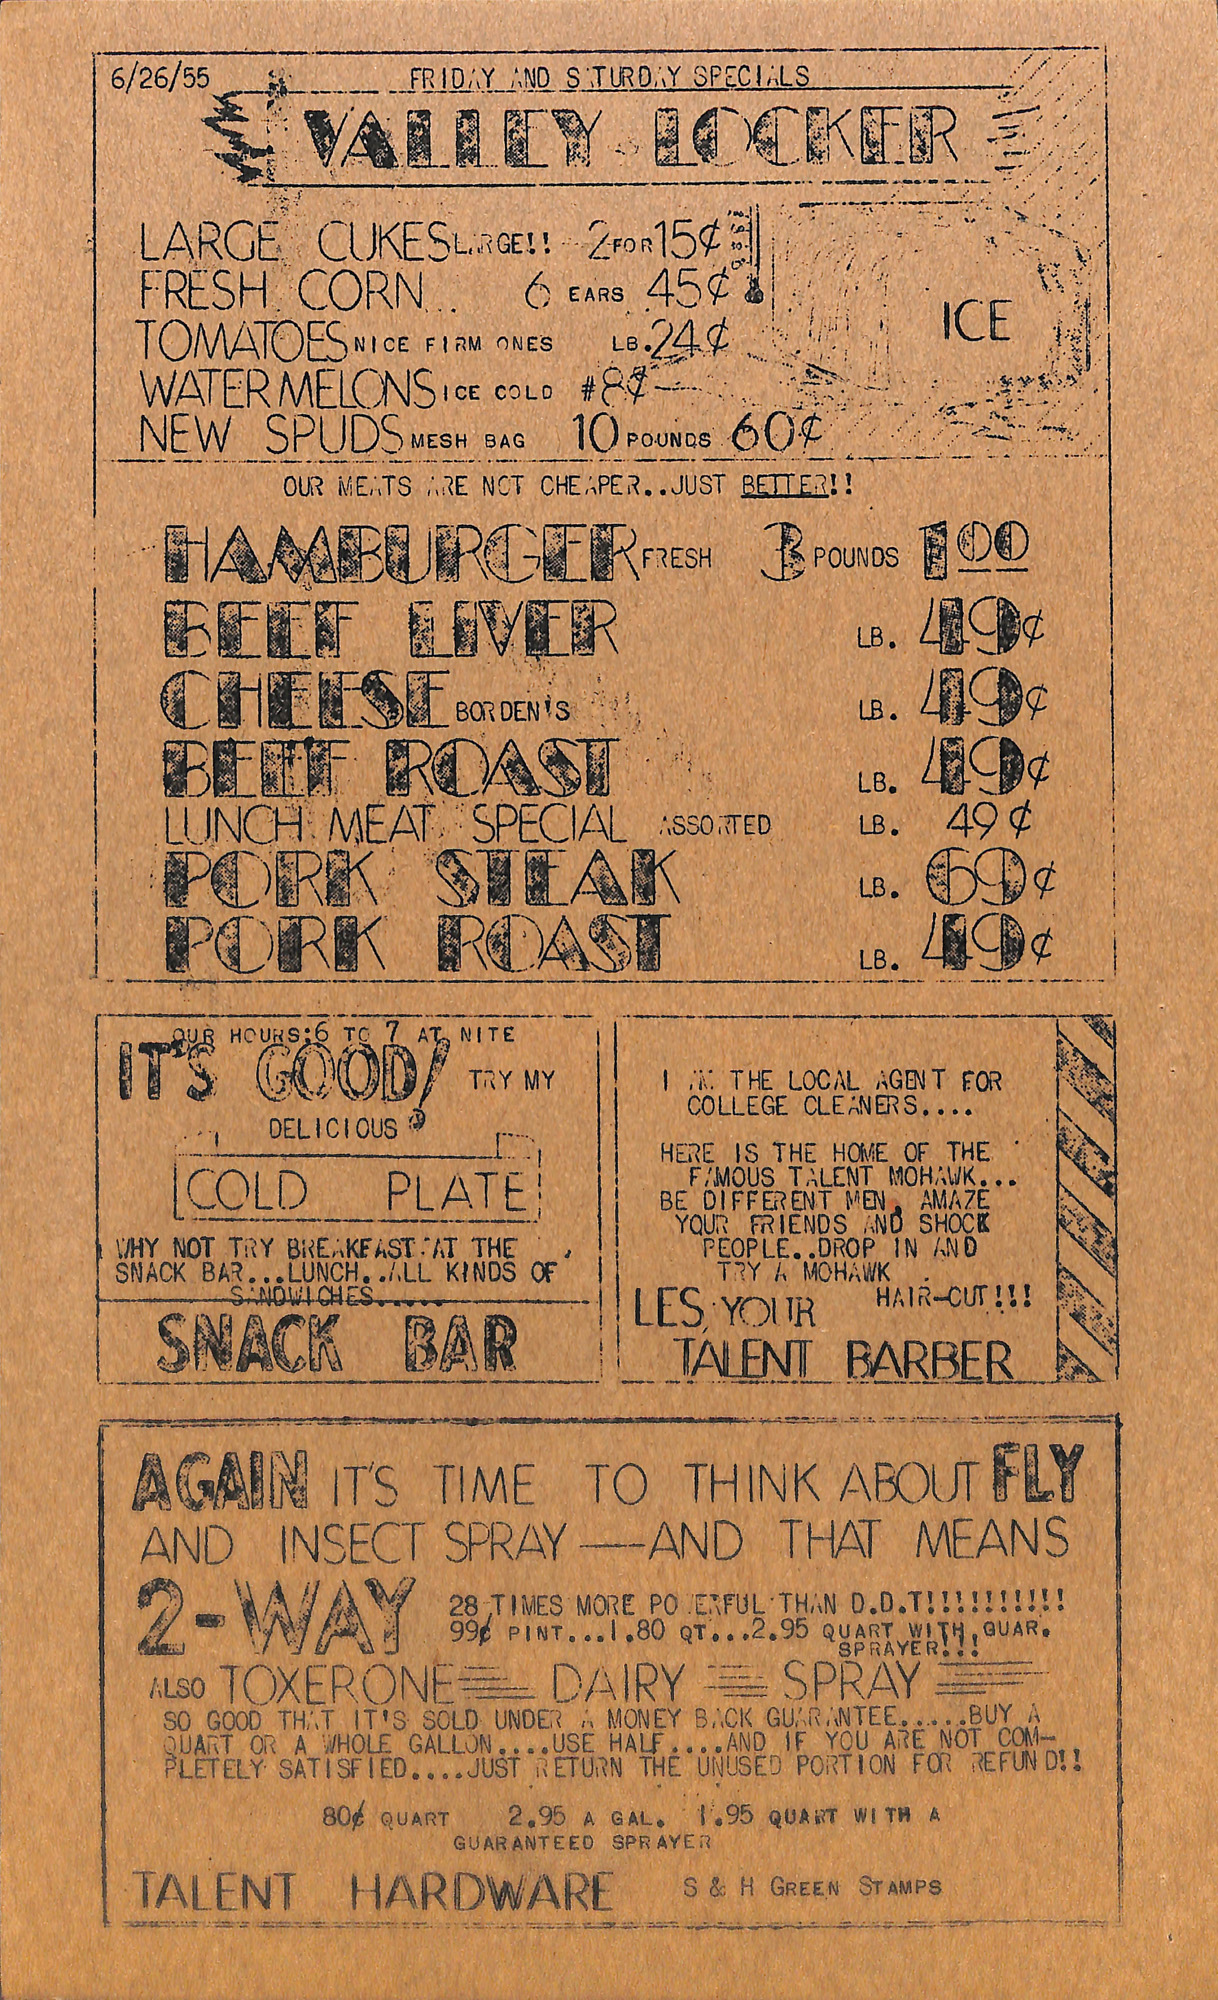 6/26/55 FRIDAY AND SATURDAY SPECIALS
VALLEY LOCKER
LARGE CUKES LARGE!! 2 FOR 15¢
FRESH CORN... 6 EARS 45¢
TOMATOES NICE FIRM ONES LB. 24¢
WATERMELONS ICE COLD #8¢
NEW SPUDS MESH BAG 10 POUNDS 60¢
ICE
OUR MEATS ARE NOT CHEAPER..JUST BETTER!!
HAMBURGER FRESH 3 POUNDS 1.00
BEEF LIVER LB. 49¢
CHEESE BORDEN'S LB. 49¢
BEEF ROAST LB. 49¢
LUNCH MEAT SPECIAL ASSORTED LB. 49¢
PORK STEAK LB. 69¢
PORK ROAST LB. 49¢
OUR HOURS:6 TO 7 AT NITE
IT'S GOOD! TRY MY
DELICIOUS
COLD PLATE
WHY NOT TRY BREAKFAST AT THE
SNACK BAR...LUNCH..ALL KINDS OF
SANDWICHES......
SNACK BAR
I AM THE LOCAL AGENT FOR
COLLEGE CLEANERS....
HERE IS THE HOME OF THE
FAMOUS TALENT MOHAWK...
BE DIFFERENT MEN, AMAZE
YOUR FRIENDS AND SHOCK
PEOPLE..DROP IN AND
TRY A MOHAWK
HAIR-CUT!!!
LES, YOUR
TALENT BARBER
AGAIN IT'S TIME TO THINK ABOUT FLY
AND INSECT SPRAY—AND THAT MEANS
2-WAY 28 TIMES MORE POWERFUL THAN D.D.T!!!!!!!!!!!
99¢ PINT...1.80 QT...2.95 QUART WITH GUAR.
SPRAYER!!!
ALSO TOXERONE DAIRY SPRAY
SO GOOD THAT IT'S SOLD UNDER A MONEY BACK GUARANTEE......BUY A
QUART OR A WHOLE GALLON....USE HALF....AND IF YOU ARE NOT COM-
PLETELY SATISFIED....JUST RETURN THE UNUSED PORTION FOR REFUND!!
80¢ QUART 2.95 A GAL. 1.95 QUART WITH A
GUARANTEED SPRAYER
TALENT HARDWARE S & H GREEN STAMPS